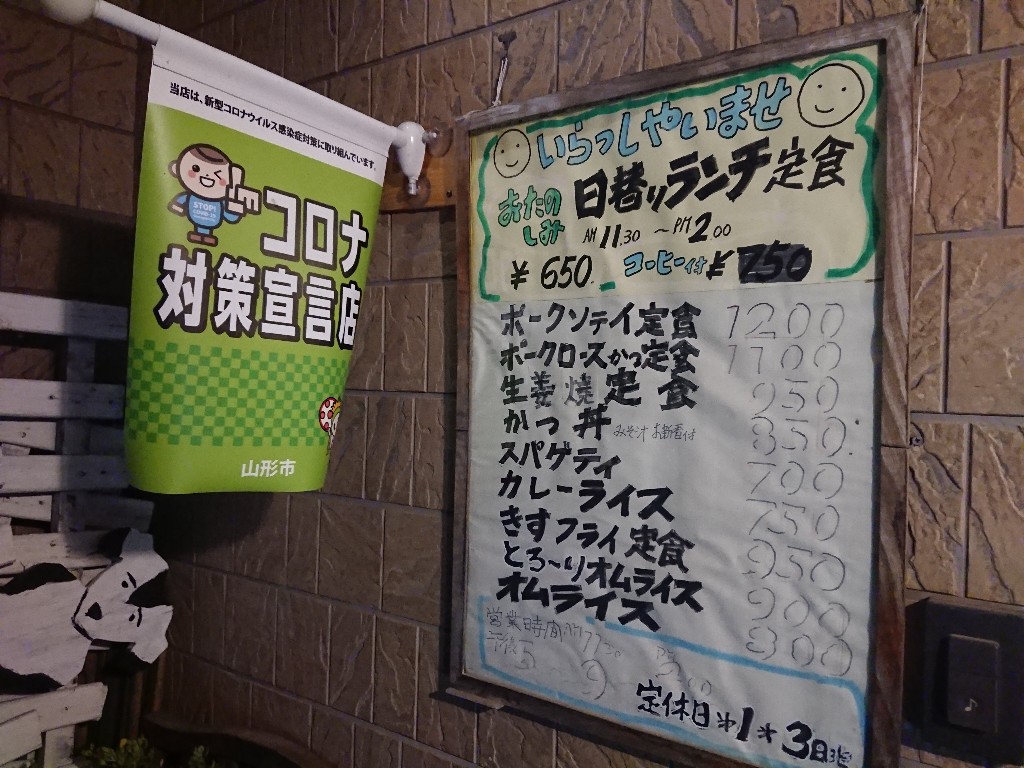 当店は、新型コロナウイルス感染症対策に取り組んでいます。
STOP!
コロナ
対策宣言店
山形市
いらっしゃいませ
おたの
しみ
日替りランチ定食
AM 11.30 ~ PM 2.00
¥650. コーヒー付 ¥750
ポークソテイ定食 1200
ポークロースかつ定食 1100
生姜焼定食 950
かつ丼 みそ汁 お新香付 850
スパゲティ 700
カレーライス 750
きすフライ定食 950
とろ~りオムライス 900
オムライス 800
営業時間
午後 5 9
定休日 第1 第3日